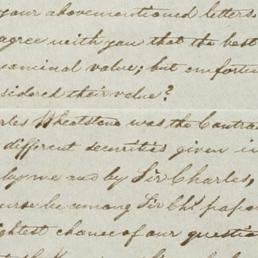 your abovementioned letters.
agree with you that the best
examinal value; but
sidered their value?
rles Wheatstone was the Contra
different securities given in
by me and by Sir Charles,
urse be among Sir Chs. paper
ghtest chance of our question